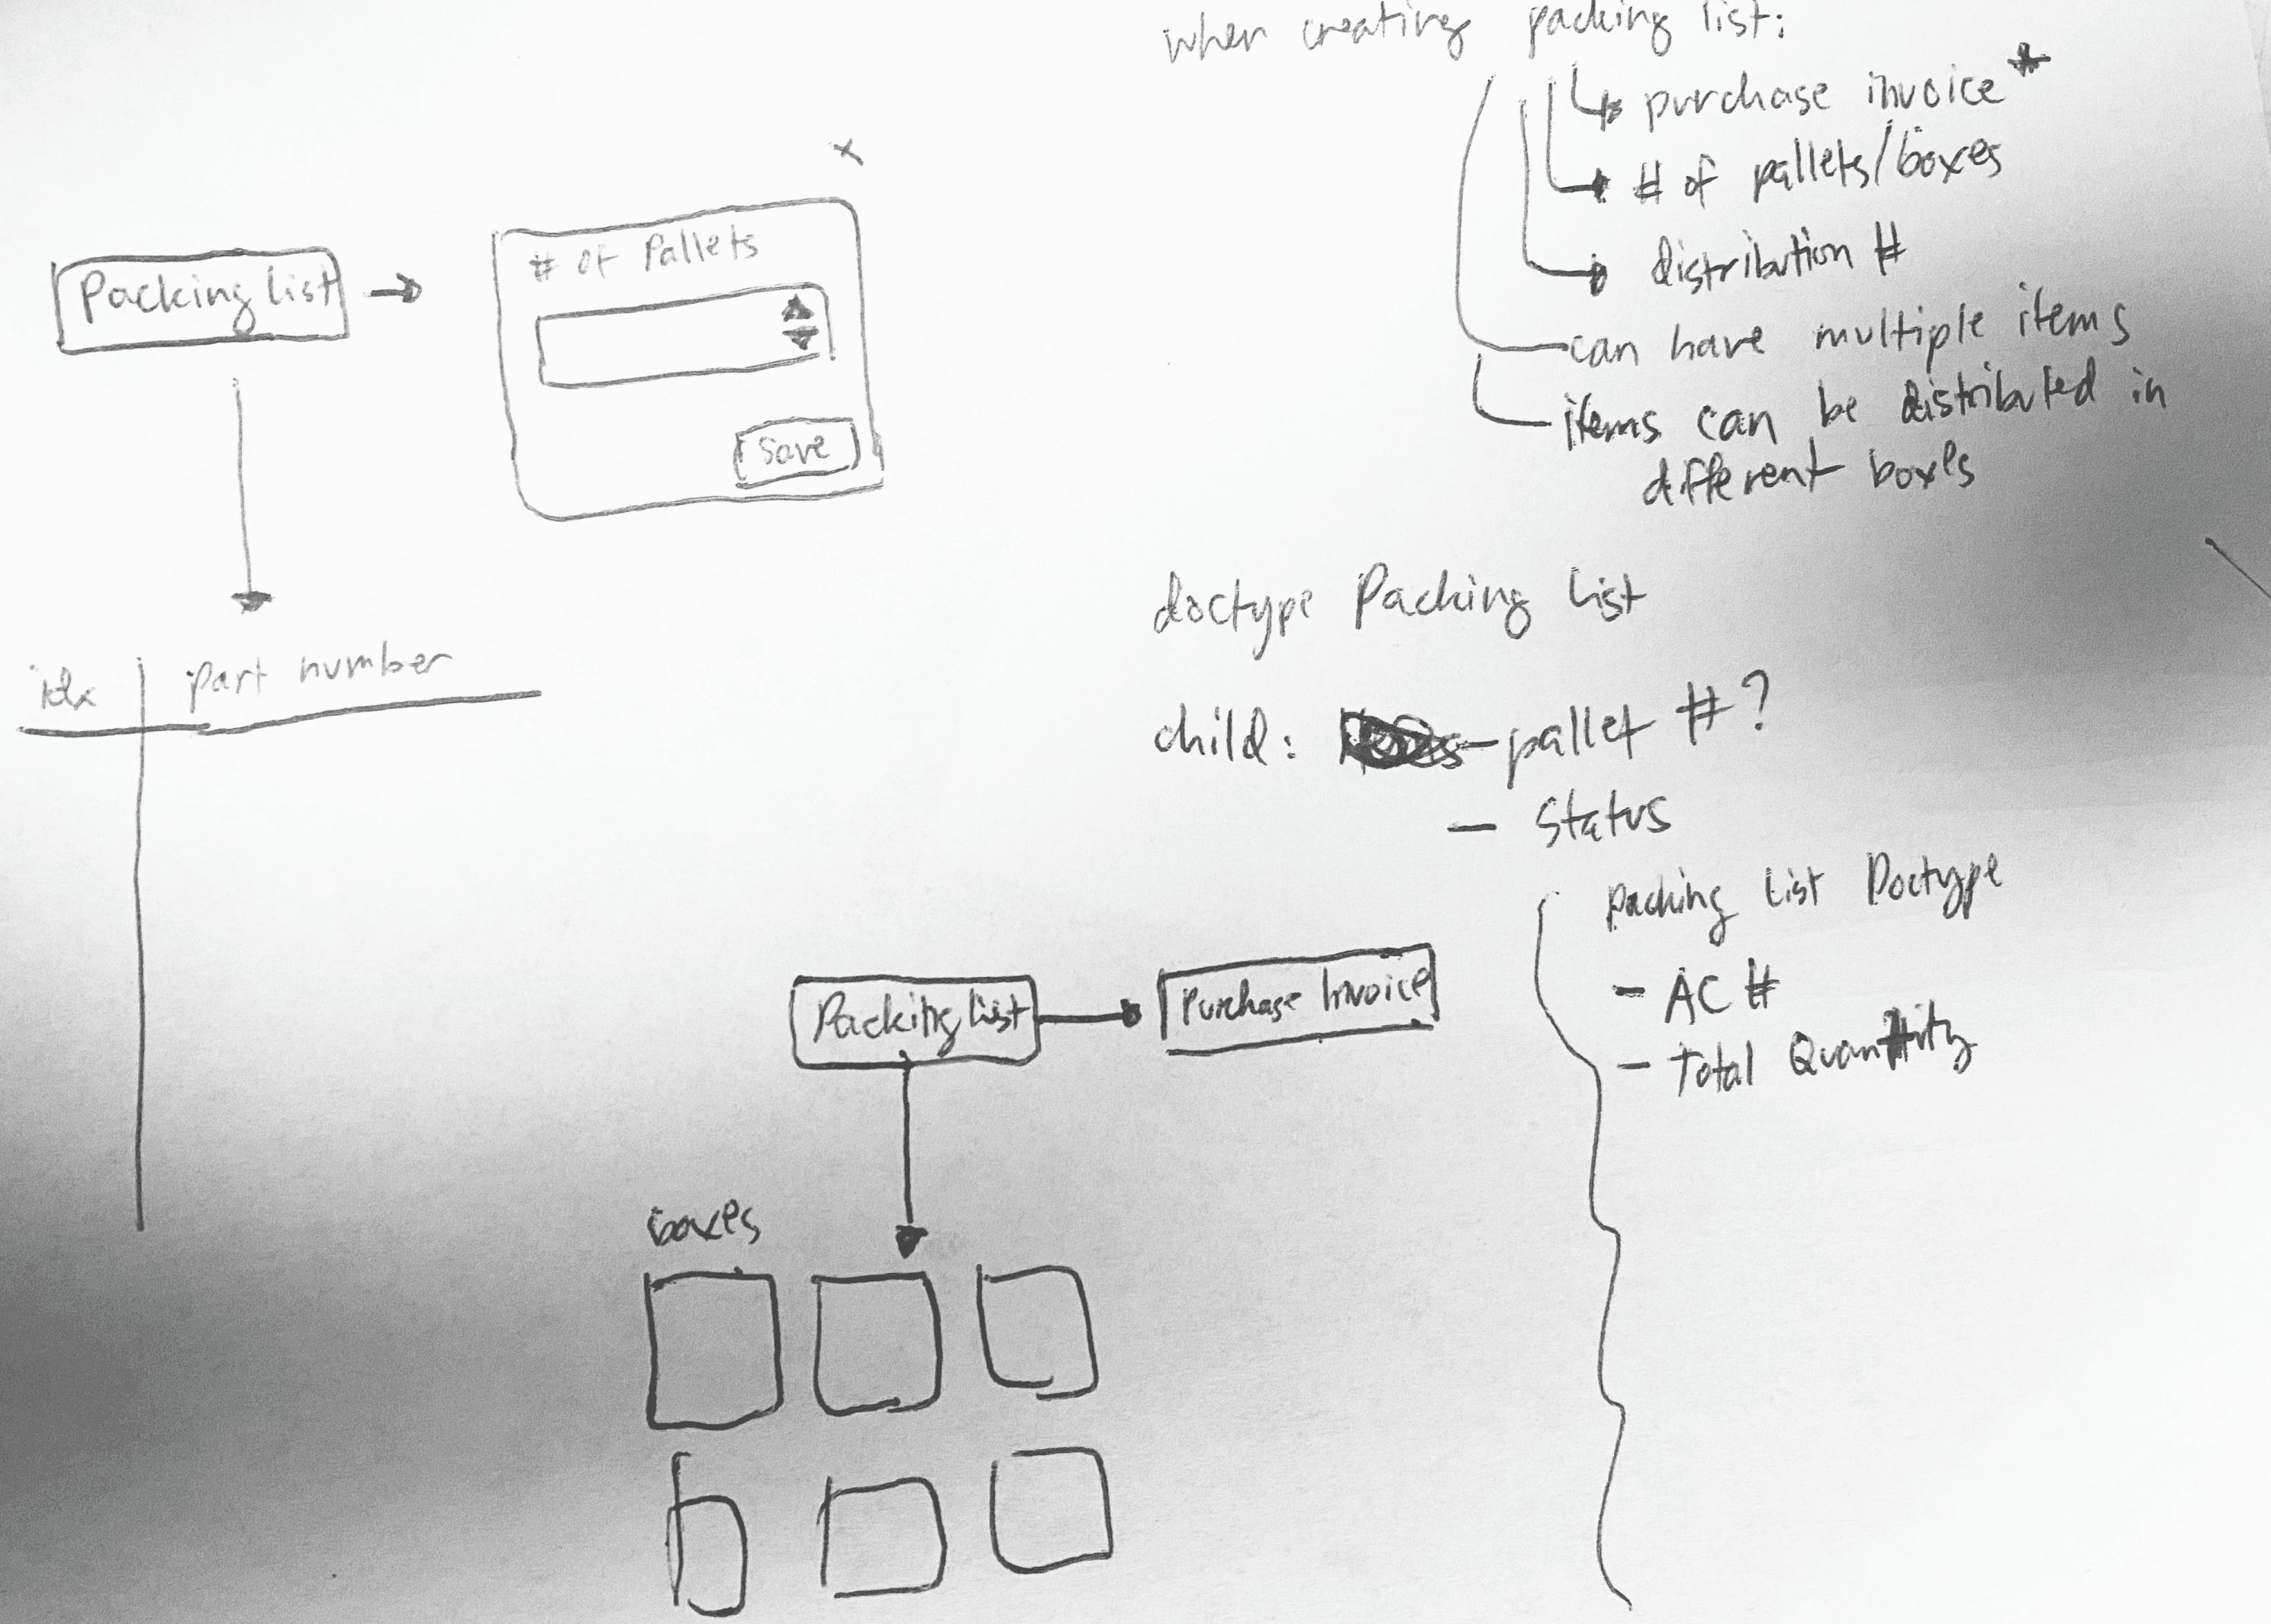 when creating packing list:
purchase invoice *
# of pallets/boxes
distribution #
can have multiple items
items can be distributed in
different boxes
x
# of Pallets
Save
Packing list
idx
part number
doctype Packing list
child:
- pallet #?
- Status
Packing List Doctype
- AC #
- Total Quantity
Packing list
Purchase Invoice
boxes